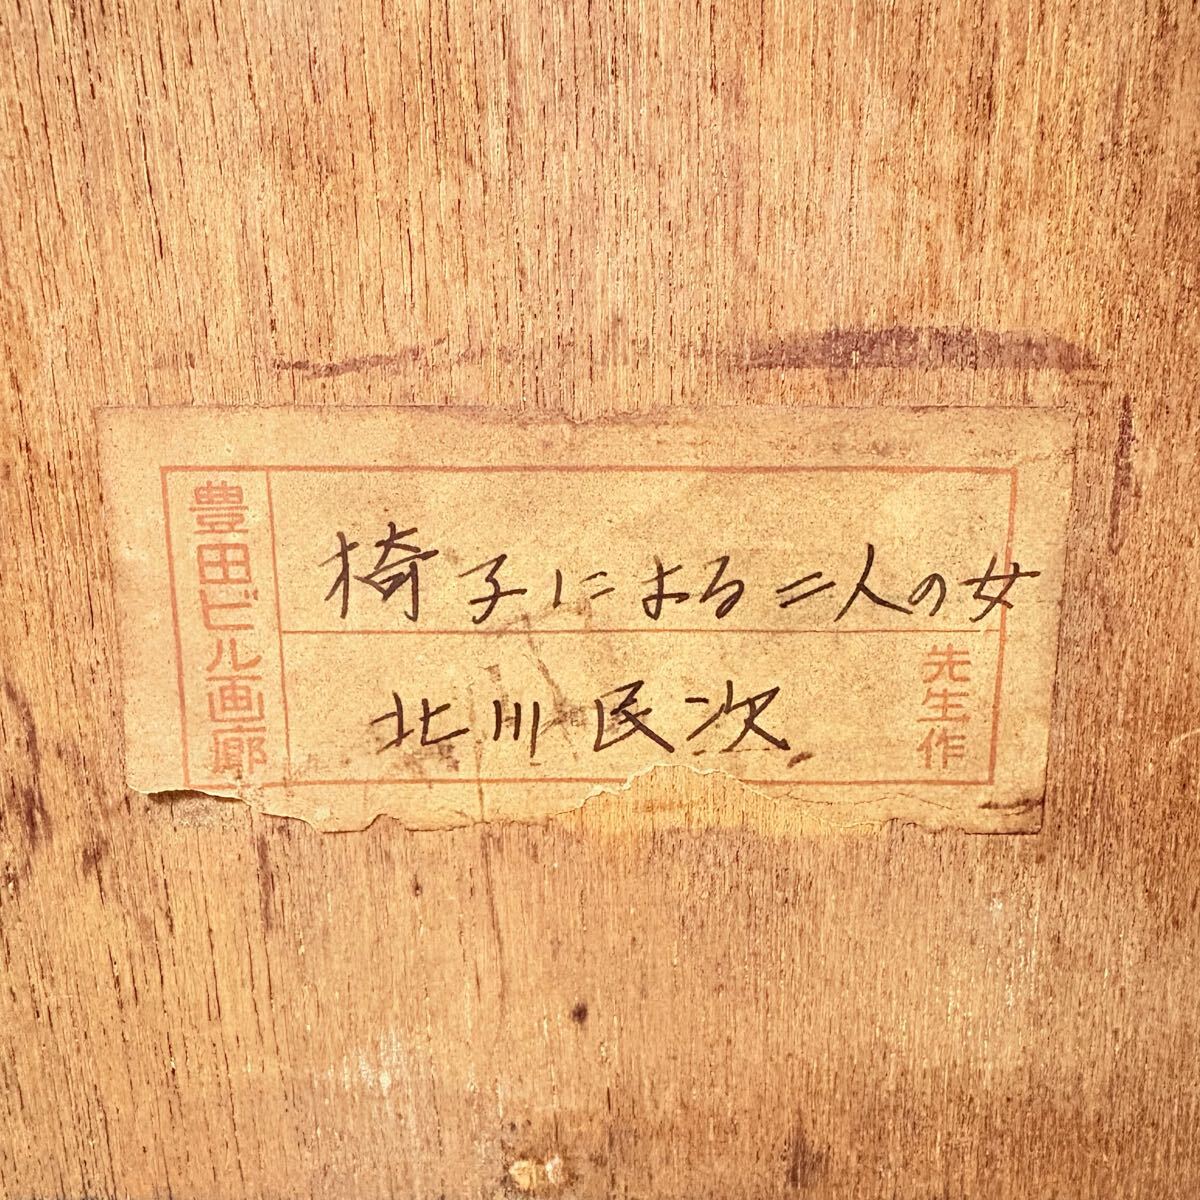 豊田ビル画廊
椅子による二人の女
北川民次
先生作